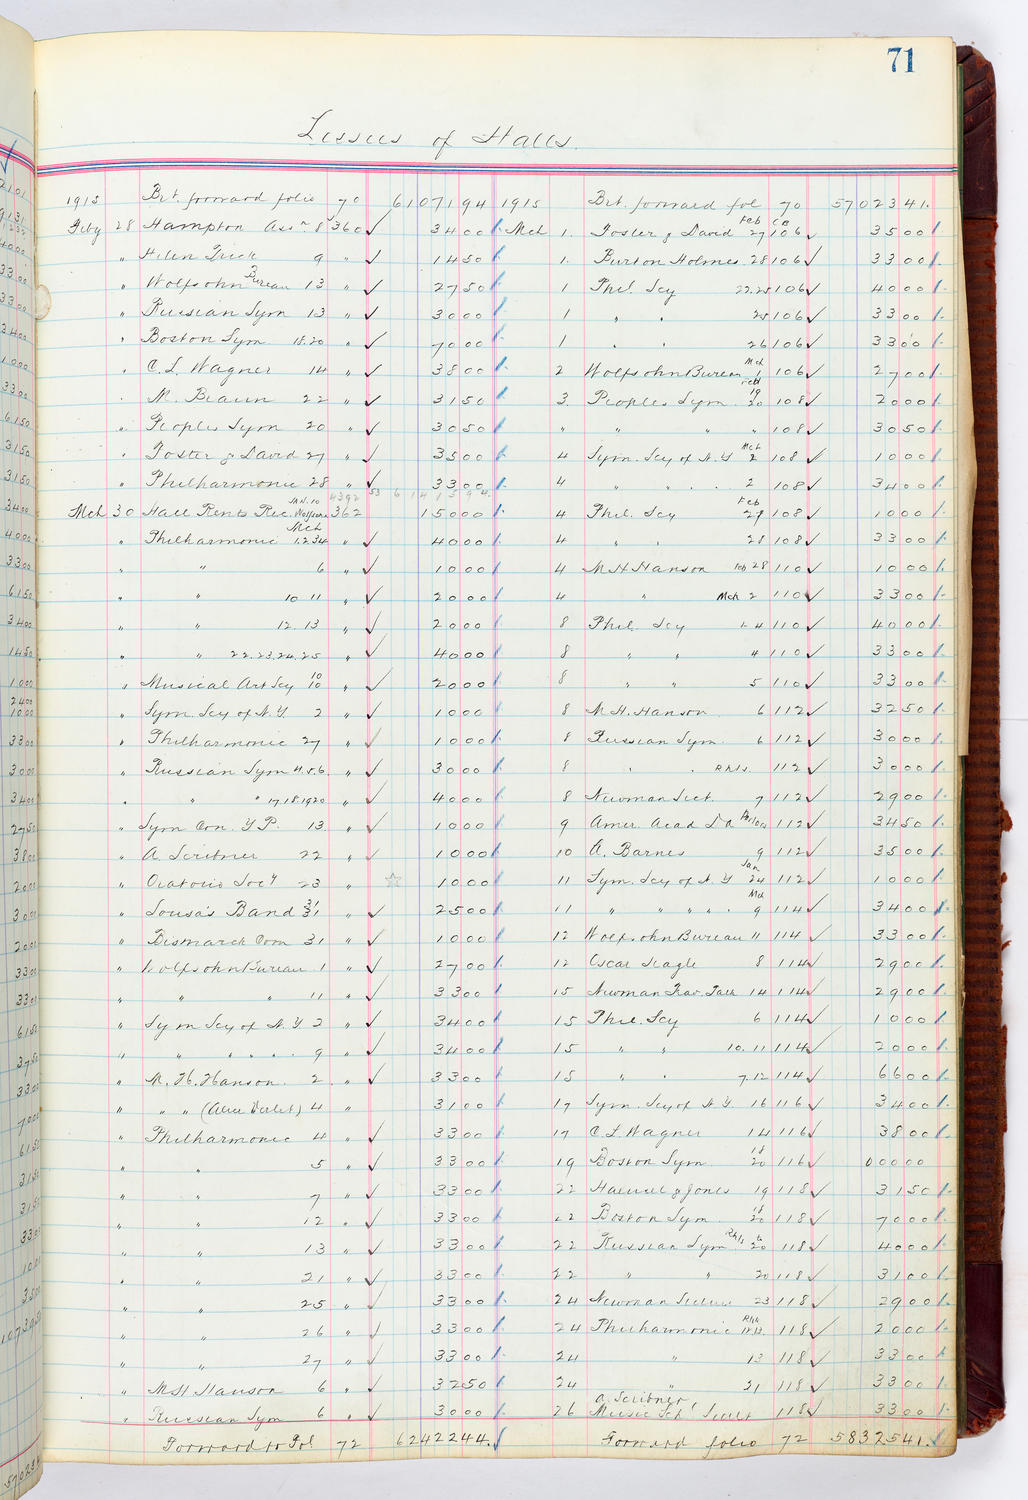 71
Lessees of Halls.
1915 Brt. forward folio 70 6107194 1915 Brt. forward fol 70 5702341.
Feby 28 Hampton Assn 8 360 ✓ 3400 Mch 1. Foster & David Feb 27 106 ✓ 3500
" Helen 9 " ✓ 1450 1. Burton Holmes 28 106 ✓ 3300
" Wolfsohn Bureau 3 13 " ✓ 2750 1 Phil. Scy 106 ✓ 4000
" Russian Sym 13 " ✓ 3000 1 " " 25 106 ✓ 3300
" Boston Sym 18.20 " ✓ 7000 1 " " 26 106 ✓ 3300
" C. L. Wagner 14 " ✓ 3800 2 Wolfsohn Bureau Mch 1 106 ✓ 2700
" Braun 22 " ✓ 3150 3 Peoples Sym. Feb 19 20 108 ✓ 2000
" Peoples Sym 20 " ✓ 3050 " " " " 108 ✓ 3050
" Foster & David 27 " ✓ 3500 4 Sym. Scy of N.Y Mch 2 108 ✓ 1000
" Philharmonic 28 " ✓ 3300 4 " " . . 2 108 ✓ 3400
Mch 30 Hall Rents Rec. JAN. 10 362 15000 4 Phil. Scy Feb 27 108 ✓ 1000
" Philharmonic Mch 1.2.3.4 " ✓ 4000 4 " " 28 108 ✓ 3300
" " 6 " ✓ 1000 4 M H Hanson Feb 28 110 ✓ 1000
" " 10 11 " ✓ 2000 4 " Mch 2 110 ✓ 3300
" " 12. 13 " ✓ 2000 8 Phil. Scy 1-4 110 ✓ 4000
" " 22.23.24.25 " ✓ 4000 8 " " 4 110 ✓ 3300
" Musical Art Scy 10 10 " ✓ 2000 8 " " 5 110 ✓ 3300
" Sym. Scy of N.Y. 2 " ✓ 1000 8 M. H. Hanson 6 112 ✓ 3250
" Philharmonic 27 " ✓ 1000 8 Russian Sym. 6 112 ✓ 3000
" Russian Sym 4.5.6. " ✓ 3000 8 " . Rhls. 112 ✓ 3000
" " " 17.18.19 20 " ✓ 4000 8 Newman Lect. 7 112 ✓ 2900
" Sym Con. Y P. 13. " ✓ 1000 9 Amer. Acad D A 112 ✓ 3450
" A. Scribner 22 " ✓ 1000 10 A. Barnes 9 112 ✓ 3500
" Oratorio Socy 23 " ☆ 1000 11 Sym. Scy of N.Y Jan 24 112 ✓ 1000
" Sousa's Band 31 " ✓ 2500 11 " " " " Mch 9 114 ✓ 3400
" Bismarck Com 31 " ✓ 1000 12 Wolfsohn Bureau 11 114 ✓ 3300
" Wolfsohn Bureau 1 " ✓ 2700 12 Oscar Seagle 8 114 ✓ 2900
" " " 11 " ✓ 3300 15 Newman Trav. Talk 14 114 ✓ 2900
" Sym Scy of N.Y 2 " ✓ 3400 15 Phil. Scy 6 114 ✓ 1000
" " " . . . 9 " ✓ 3400 15 " " 10. 11 114 ✓ 2000
" M. H. Hanson 2 " ✓ 3300 15 " . 7.12 114 ✓ 6600
" " " (Alice Verlet) 4 " 3100 17 Sym. Scy of N.Y 16 116 ✓ 3400
" Philharmonic 4 " ✓ 3300 17 C L Wagner 14 116 ✓ 3800
" " 5 " ✓ 3300 19 Boston Sym 18 20 116 ✓ 00000
" " 7 " ✓ 3300 22 Haensel & Jones 19 118 ✓ 3150
" " 12 " ✓ 3300 22 Boston Sym. 18 20 118 ✓ 7000
" " 13 " ✓ 3300 22 Russian Sym Rhls 20 118 ✓ 4000
" " 21 " ✓ 3300 22 " " 20 118 ✓ 3100
" " 25 " ✓ 3300 24 Newman Lecture 23 118 ✓ 2900
" " 26 " ✓ 3300 24 Philharmonic 118 ✓ 2000
" " 27 " ✓ 3300 24 " 13 118 ✓ 3300
" M H Hanson 6 " ✓ 3250 24 " 21 118 ✓ 3300
" Russian Sym 6 " ✓ 3000 26 A. Scribner Music 118 ✓ 3300
Forward to Fol 72 6242244. Forward folio 72 5832541.